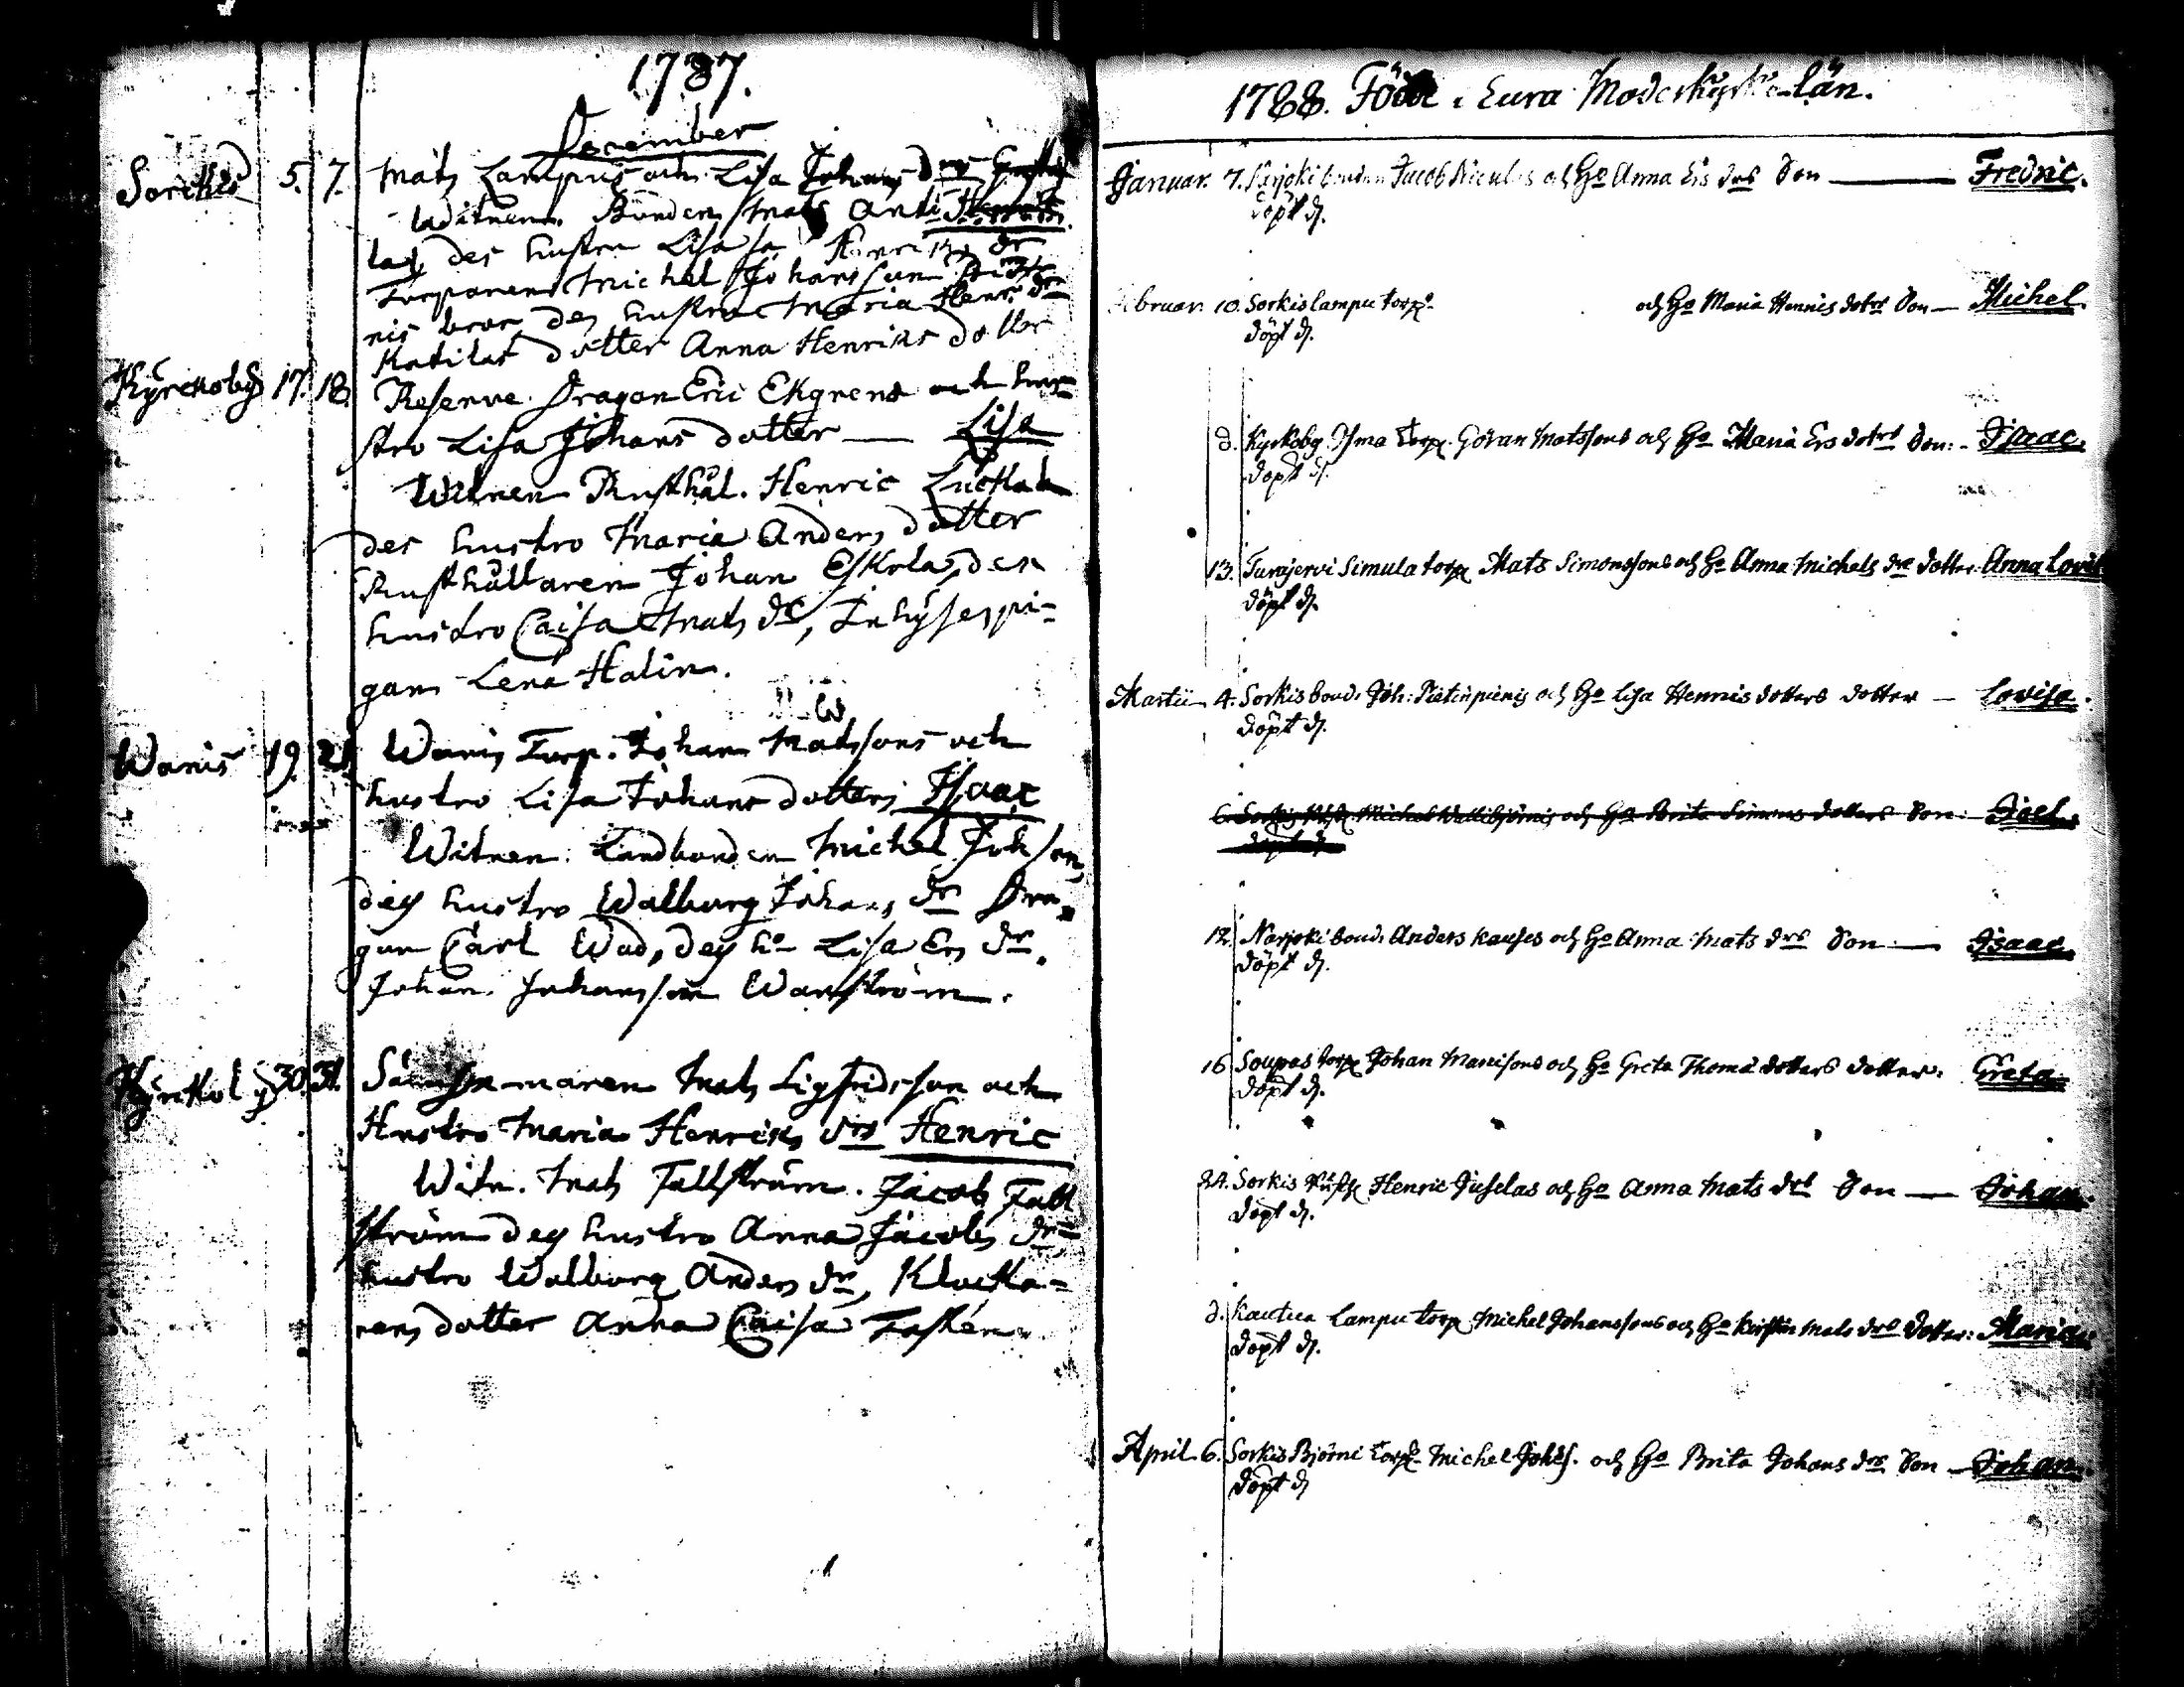 1787.
December
Sorckis 5. 7. Mats Lampus och Lisa Johans drs
Witnen. Bonden Mats Anti
las des hustru Lisa Henrics dr
Torparen Michel Johansson
nis bror, des hustru Maria Henr. dr
Katilas dotter Anna Henrics dotter
Kyrckoby 17. 18. Reserve Dragon Eric Ekgrens och hu-
stro Lisa Johans dotter — Lisa
Witnen Rusthål. Henric Luckala
des hustro Maria Anders dotter
Rusthållaren Johan Eskola, des
hustro Caisa Mats dr, Inhyses pi-
gan Lena Halin.
Wanis 19. 21. Wanis Torp. Johan Matssons och
hustro Lisa Johans dotters Isaac
Witnen. Landbonden Michel Johsson,
des hustro Walborg Johans dr Dra-
gun Carl Wad, des ho Lisa Ers dr.
Johan Johansson Wanström.
Kyrckoby 30. 31. Mats Sigfridsson och
Hustro Maria Henrics drs Henric
Witn. Mats Fallström. Jacob Fall
ström des hustro Anna Jacobs dr
hustro Walborg Anders dr, Klocka-
rens dotter Anna Caisa
1788. Födde i Eura Moderkyrko län.
Januar. 7. bonden Jacob och Ho Anna Ers drs Son — Fredric.
döpt d.
Februar. 10. Sorkis lampu torp. och Ho Maria Henrics dotrs Son — Michel.
döpt d.
d. Kyrkoby. Torp. Göran Matssons och Ho Maria Ers dotrs Son: - Isaac.
döpt d.
13. Turajervi Simula torp. Mats Simonssons och Ho Anna Michels drs dotter. Anna Lovis
döpt d.
Martii 4. Sorkis bond. Joh: och Ho Lisa Henrics dotters dotter — Lovisa.
döpt d.
6. Sorkis Michel och Ho Brita Simons dotters Son: Joel.
döpt d.
12. Narjoki bond. Anders Kauses och Ho Anna Mats drs Son — Isaac.
döpt d.
16. Soupas torp. Johan och Ho Greta Thomæ dotters dotter. Greta.
döpt d.
24. Sorkis Rusth. Henric och Ho Anna Mats drs Son — Johan.
döpt d.
d. Kautua Lampu torp. Michel Johanssons och Ho Kirstin Mats drs dotter: Maria.
döpt d.
April. 6. Sorkis Björni Torp. Michel Johss. och Ho Brita Johans drs Son — Johan.
döpt d